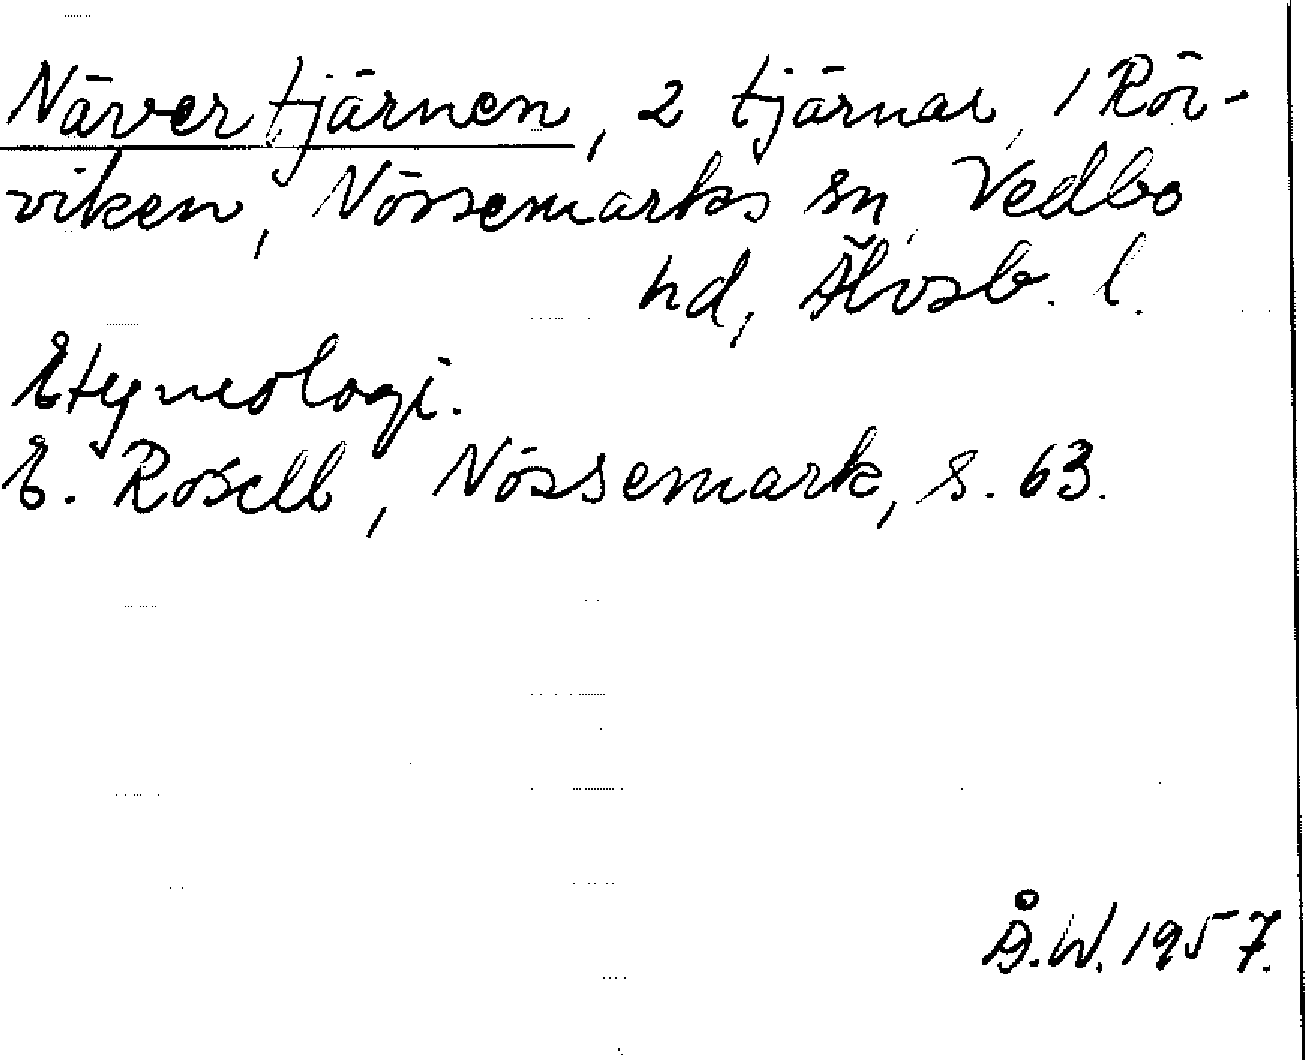 Nävertjärnen, 2 tjärnar, 1 Rör-
viken, Nössemarks sn, Vedbo
hd, Älvsb. l.
Etymologi.
E. Rosell, Nössemark, s. 63.
Å.W. 1957.